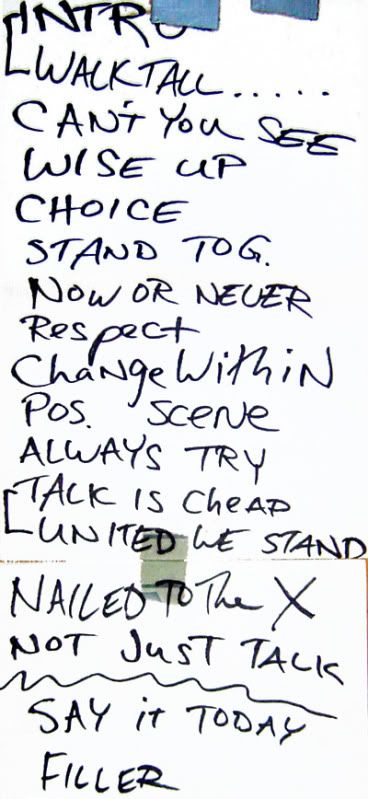 INTRO
WALK TALL.....
CAN'T YOU SEE
WISE UP
CHOICE
STAND TOG.
NOW OR NEVER
Respect
Change WithiN
POS. SCENE
ALWAYS TRY
TALK IS CHeAP
UNITED WE STAND
NAILED To The X
NOT JUST TALK
SAY iT TODAY
FILLER